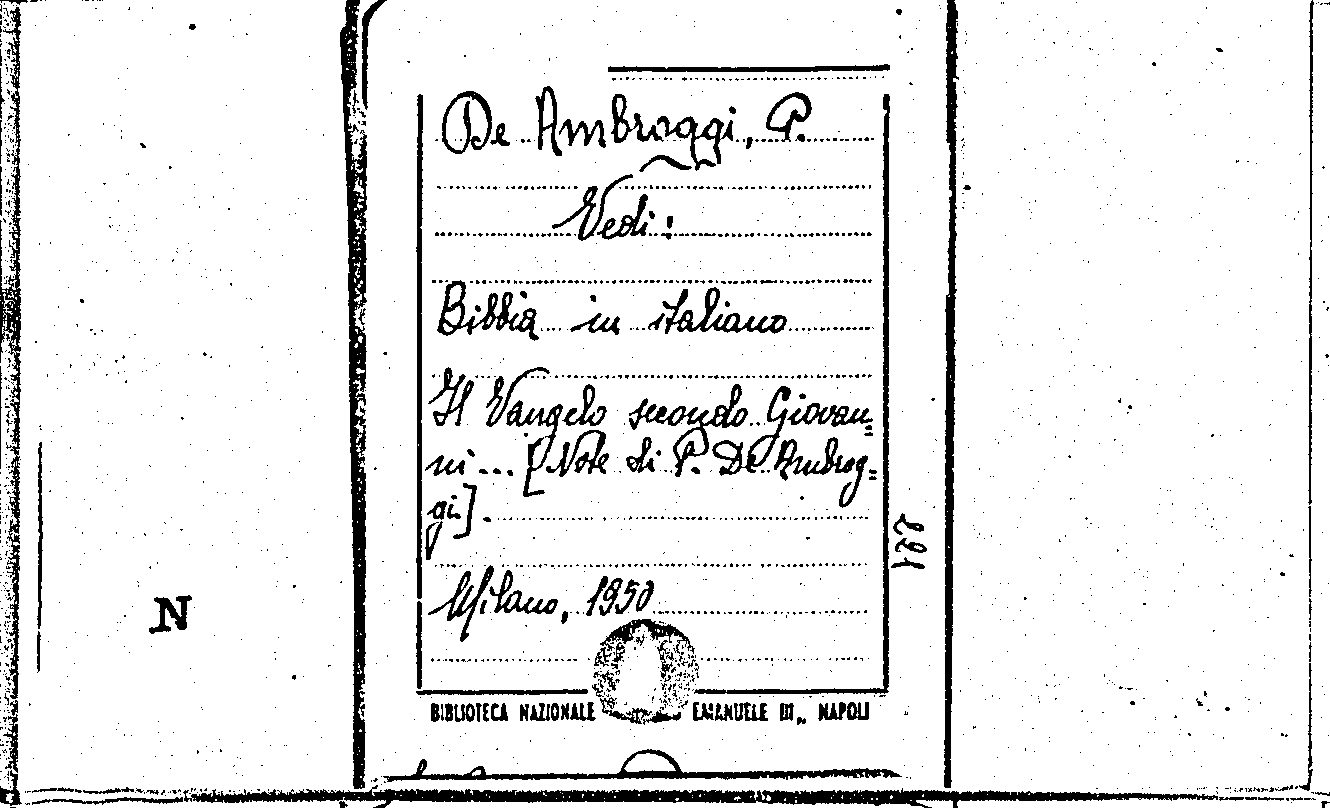 De Ambroggi, P.
Vedi:
Bibbia in italiano
Il Vangelo secondo Giovan=
ni... [Note di P. De Ambrog=
gi].
Milano, 1950
BIBLIOTECA NAZIONALE EMANUELE III„ NAPOLI
N